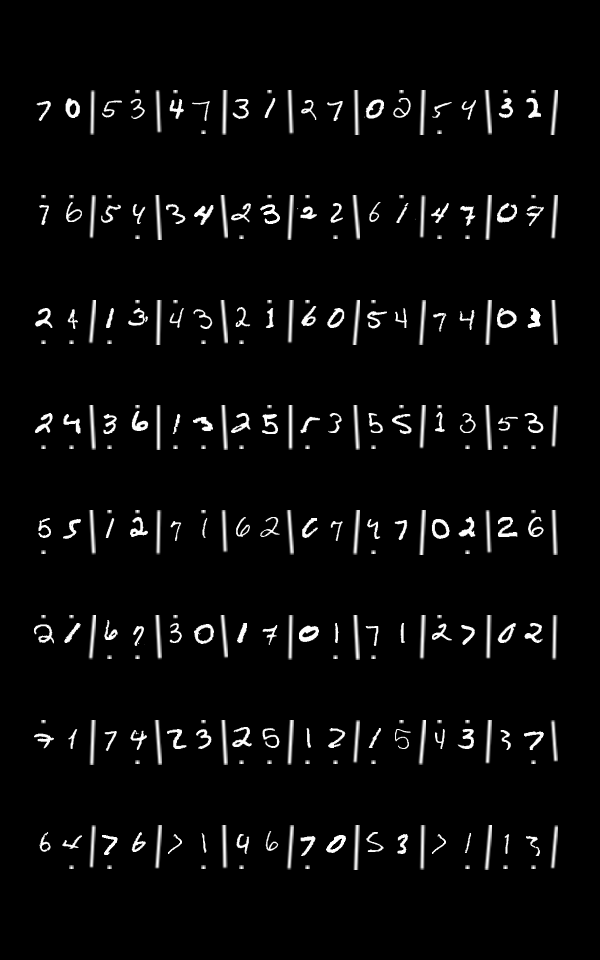 7 0 | 5 3 | 4 7 | 3 1 | 2 7 | 0 2 | 5 4 | 3 2 |
7 6 | 5 4 | 3 4 | 2 3 | 2 2 | 6 1 | 4 7 | 0 7 |
2 4 | 1 3 | 4 3 | 2 1 | 6 0 | 5 4 | 7 4 | 0 3 |
2 4 | 3 6 | 1 3 | 2 5 | 5 3 | 5 5 | 1 3 | 5 3 |
5 5 | 1 2 | 7 1 | 6 2 | 0 7 | 4 7 | 0 2 | 2 6 |
2 1 | 6 7 | 3 0 | 1 7 | 0 1 | 7 1 | 2 7 | 0 2 |
7 1 | 7 4 | 2 3 | 2 5 | 1 2 | 1 5 | 4 3 | 3 7 |
6 4 | 7 6 | 7 1 | 4 6 | 7 0 | 5 3 | 7 1 | 1 3 |